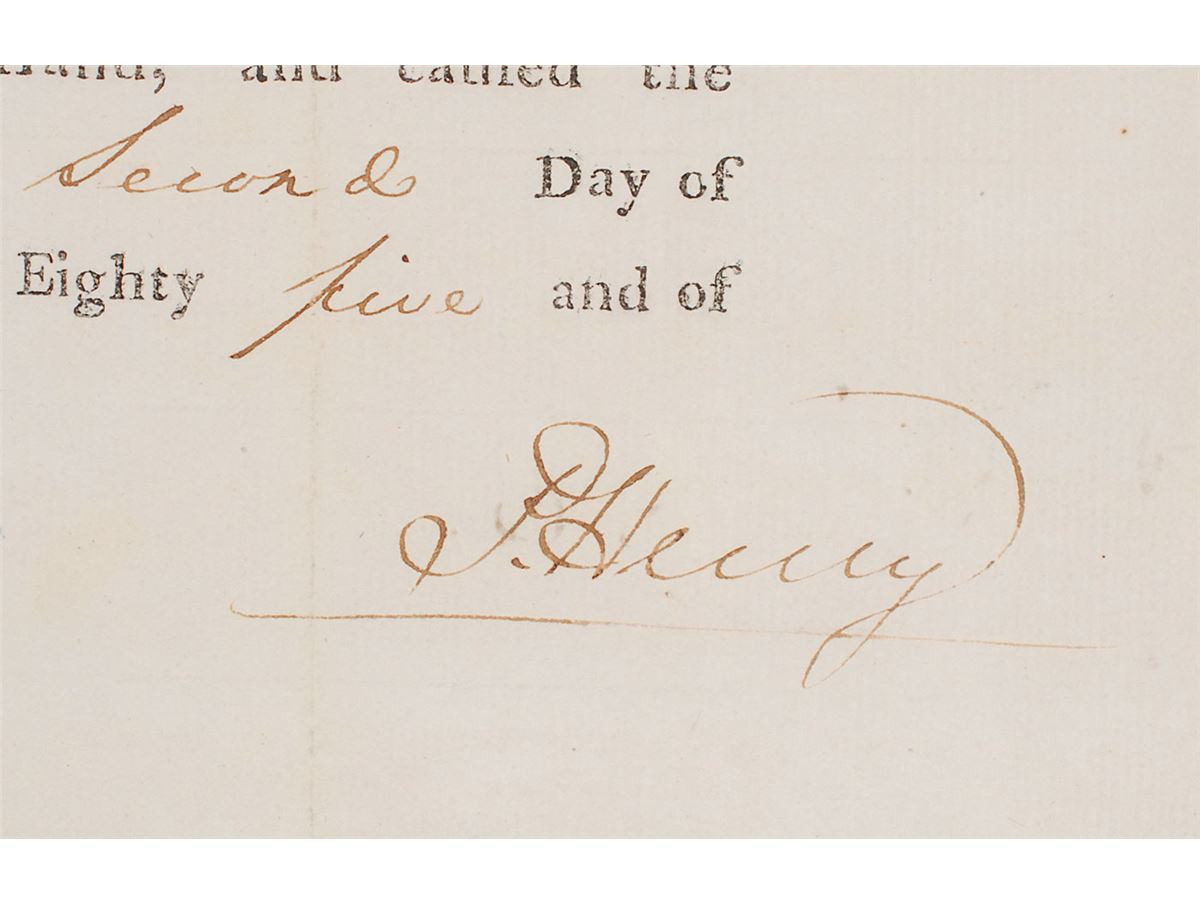 Hand, and caused the
Second Day of
Eighty five and of
P. Henry